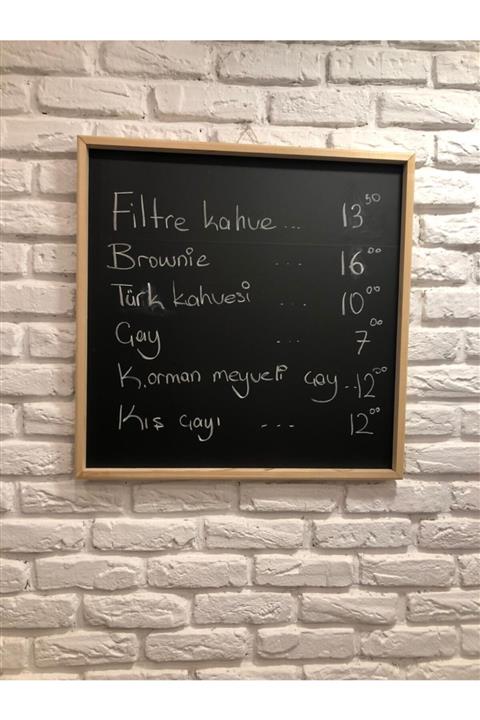 Filtre kahve ... 13 50
Brownie ... 16 00
Türk kahvesi ... 10 00
Çay ... 7 00
K.orman meyveli çay .. 12 00
Kış çayı --- 12 00